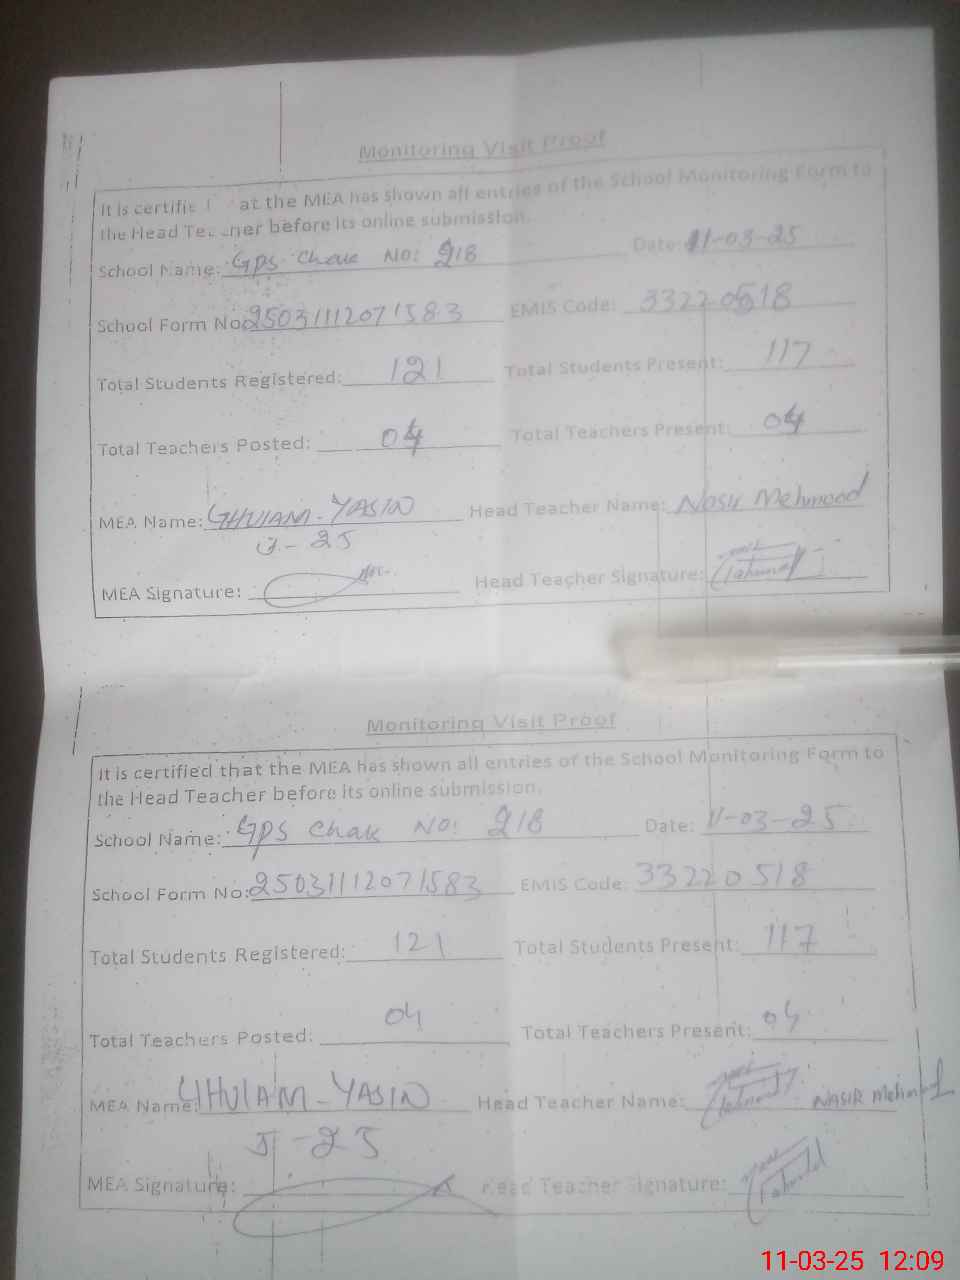 Monitoring Visit Proof
It is certifie at the MEA has shown all entries of the School Monitoring Form to
the Head Teacher before its online submission.
School Name: GPS Chak No: 218 Date: 11-03-25
School Form No: 25031112071583 EMIS Code: 33220518
Total Students Registered: 121 Total Students Present: 117
Total Teachers Posted: 04 Total Teachers Present: 04
MEA Name: GHULAM-YASIN Head Teacher Name: Nasir Mehmood
- 25
MEA Signature: Head Teacher Signature:
Monitoring Visit Proof
It is certified that the MEA has shown all entries of the School Monitoring Form to
the Head Teacher before its online submission.
School Name: GPS Chak NO: 218 Date: 11-03-25
School Form No: 25031112071583 EMIS Code: 33220518
Total Students Registered: 121 Total Students Present: 117
Total Teachers Posted: 04 Total Teachers Present: 04
MEA Name: GHULAM-YASIN Head Teacher Name: NASIR
J-25
MEA Signature: Head Teacher Signature:
11-03-25 12:09